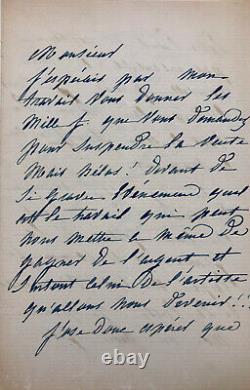 Monsieur
J'espérais par mon
travail vous donner les
Mille f que vous demandez
pour suspendre la vente
Mais hélas! devant de
si graves évènement quel
est le travail qui peut
nous mettre a même de
gagner de l'argent et
surtout celui de l'artiste
qu'allons nous devenir!!
J'ose donc espérer que
ebay